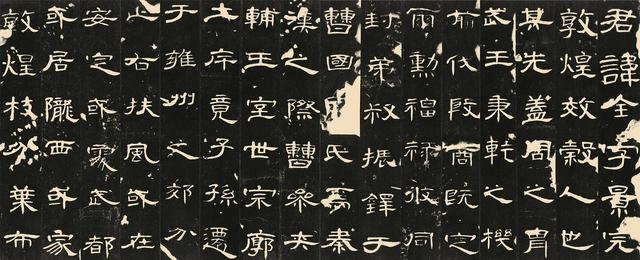 君諱全字景完
敦煌效穀人也
其先蓋周之胄
武王秉乾之機
翦伐殷商既定
爾勳福祿攸同
封弟叔振鐸于
曹國氏焉秦
漢之際曹參夾
輔王室世宗廓
土斥竟子孫遷
于雍州之郊分
止右扶風或在
安定或處武都
或居隴西或家
敦煌枝分葉布